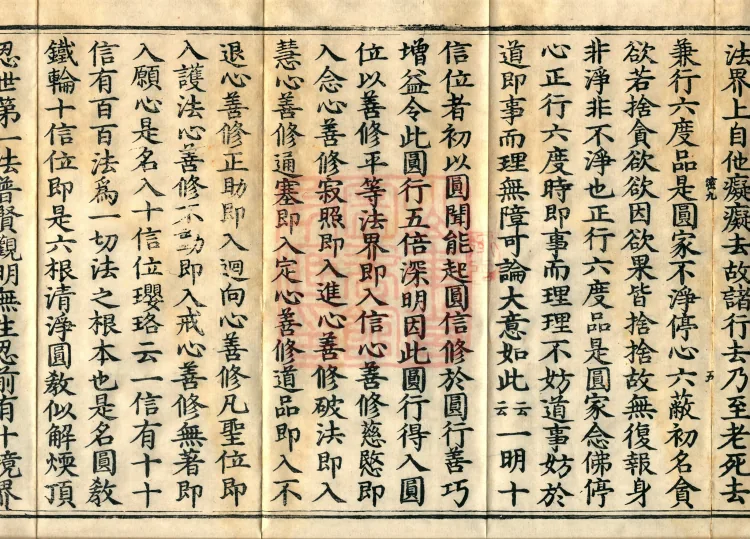 法界上自他癡癡去故諸行去乃至老死去
兼行六度品是圓家不淨停心六蔽初名貪
欲若捨貪欲欲因欲果皆捨捨故無復報身
非淨非不淨也正行六度品是圓家念佛停
心正行六度時即事而理理不妨道事妨於
道即事而理無障可論大意如此云云一明十
信位者初以圓聞能起圓信修於圓行善巧
增益令此圓行五倍深明因此圓行得入圓
位以善修平等法界即入信心善修慈愍即
入念心善修寂照即入進心善修破法即入
慧心善修通塞即入定心善修道品即入不
退心善修正助即入迴向心善修凡聖位即
入護法心善修不動即入戒心善修無著即
入願心是名入十信位瓔珞云一信有十十
信有百百法爲一切法之根本也是名圓教
鐵輪十信位即是六根清淨圓教似解煗頂
忍世第一法普賢觀明無生忍前有十境界
密九
五